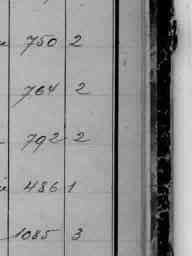 750 2
764 2
792 2
486 1
1085 3